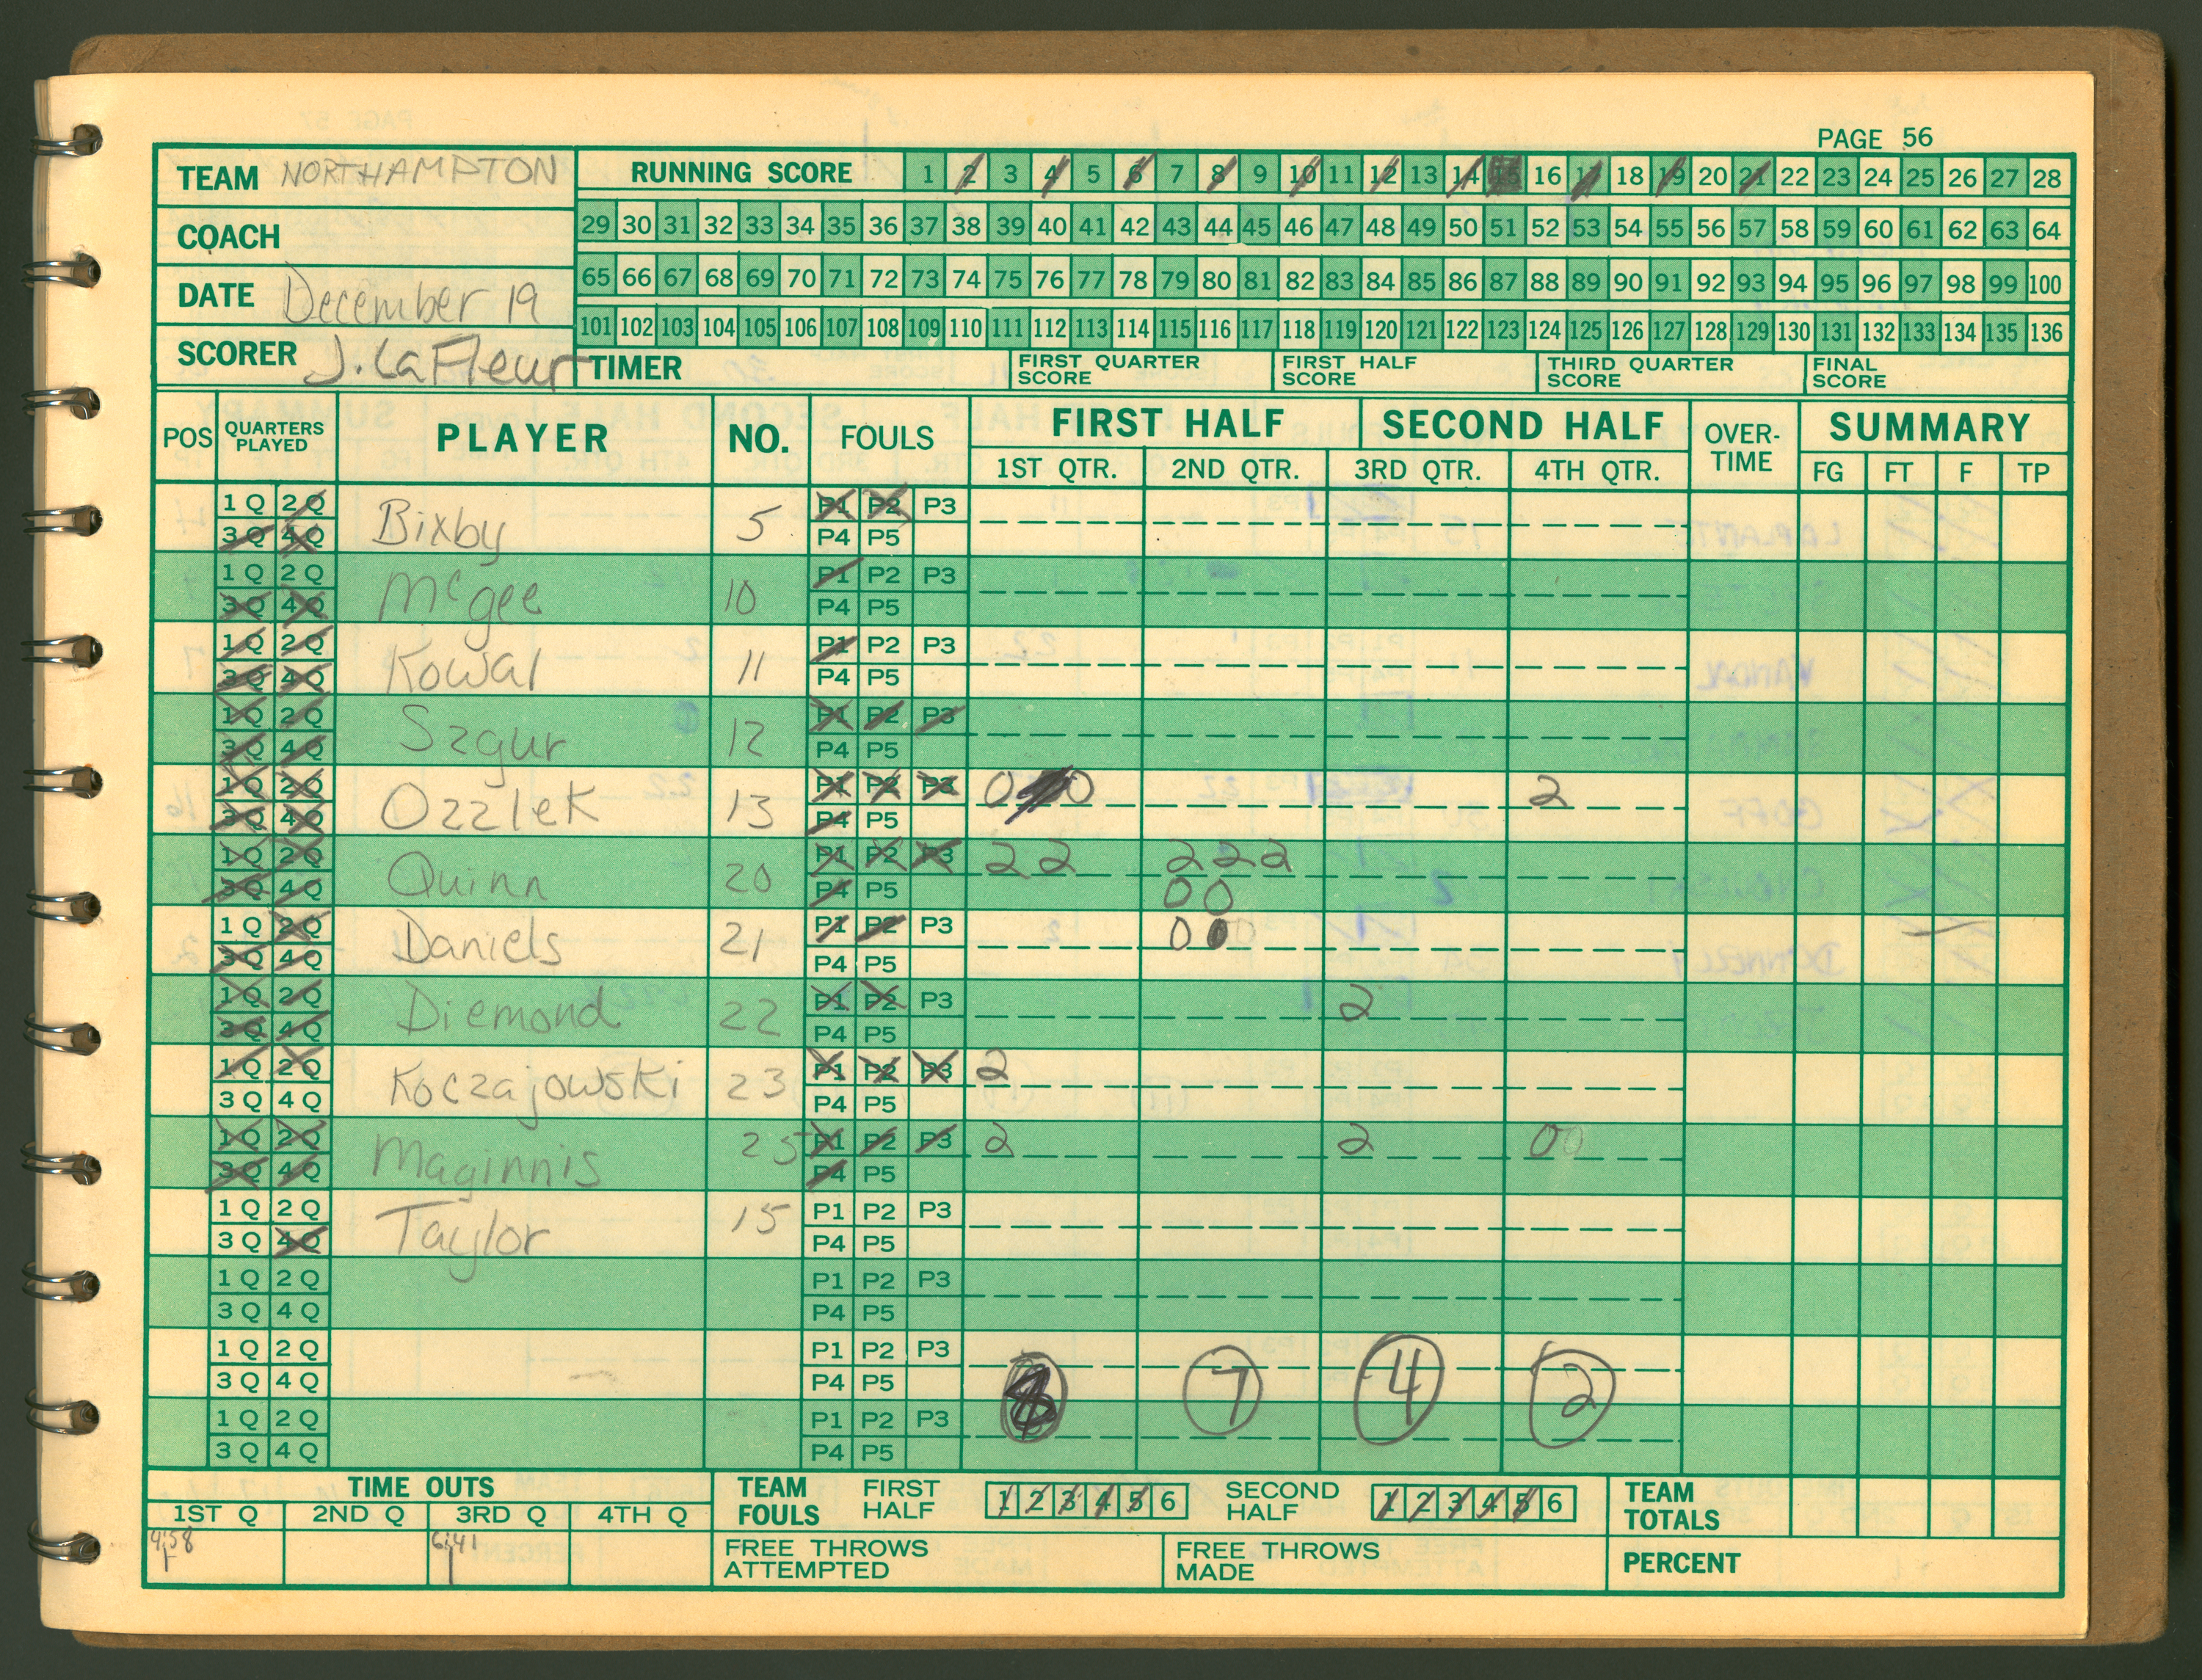 PAGE 56
TEAM NORTHAMPTON
COACH
DATE December 19
SCORER J. LaFleur
RUNNING SCORE 1 2 3 4 5 6 7 8 9 10 11 12 13 14 15 16 17 18 19 20 21 22 23 24 25 26 27 28
29 30 31 32 33 34 35 36 37 38 39 40 41 42 43 44 45 46 47 48 49 50 51 52 53 54 55 56 57 58 59 60 61 62 63 64
65 66 67 68 69 70 71 72 73 74 75 76 77 78 79 80 81 82 83 84 85 86 87 88 89 90 91 92 93 94 95 96 97 98 99 100
101 102 103 104 105 106 107 108 109 110 111 112 113 114 115 116 117 118 119 120 121 122 123 124 125 126 127 128 129 130 131 132 133 134 135 136
TIMER FIRST QUARTER SCORE FIRST HALF SCORE THIRD QUARTER SCORE FINAL SCORE
POS QUARTERS PLAYED PLAYER NO. FOULS FIRST HALF SECOND HALF OVER-TIME SUMMARY
1ST QTR. 2ND QTR. 3RD QTR. 4TH QTR. FG FT F TP
1Q 2Q Bixby 5 P1 P2 P3
3Q 4Q P4 P5
1Q 2Q McGee 10 P1 P2 P3
3Q 4Q P4 P5
1Q 2Q Kowal 11 P1 P2 P3
3Q 4Q P4 P5
1Q 2Q Szgur 12 P1 P2 P3
3Q 4Q P4 P5
1Q 2Q Ozzlek 13 P1 P2 P3 0 0 2
3Q 4Q P4 P5
1Q 2Q Quinn 20 P1 P2 P3 2 2 2 2 2
3Q 4Q P4 P5 0 0
1Q 2Q Daniels 21 P1 P2 P3 0
3Q 4Q P4 P5
1Q 2Q Diemond 22 P1 P2 P3 2
3Q 4Q P4 P5
1Q 2Q Koczajowski 23 P1 P2 P3 2
3Q 4Q P4 P5
1Q 2Q Maginnis 25 P1 P2 P3 2 2 0 0
3Q 4Q P4 P5
1Q 2Q Taylor 15 P1 P2 P3
3Q 4Q P4 P5
1Q 2Q P1 P2 P3
3Q 4Q P4 P5
1Q 2Q P1 P2 P3
3Q 4Q P4 P5 7 4 2
1Q 2Q P1 P2 P3
3Q 4Q P4 P5
TIME OUTS
1ST Q 2ND Q 3RD Q 4TH Q
4:58 6:41
TEAM FOULS FIRST HALF 1 2 3 4 5 6 SECOND HALF 1 2 3 4 5 6
TEAM TOTALS
FREE THROWS ATTEMPTED FREE THROWS MADE PERCENT